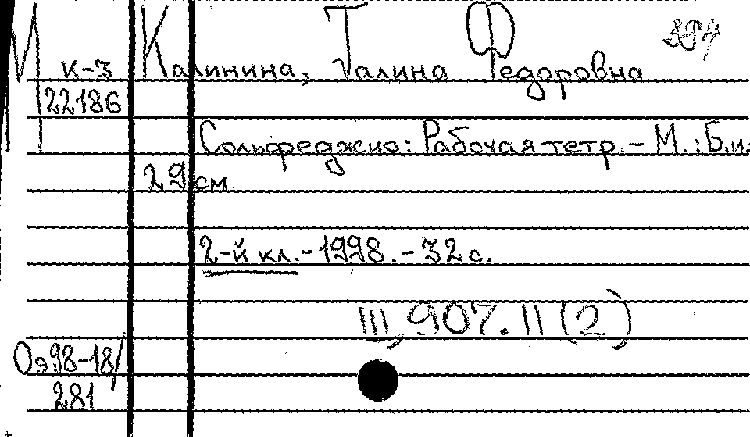 М К-3 Калинина, Галина Федоровна
22186
Сольфеджио: Рабочая тетр. - М.: Б.и.
29 см
2-й кл. - 1998. - 32 с.
III, 907. II (2)
Оэ98-18/
281